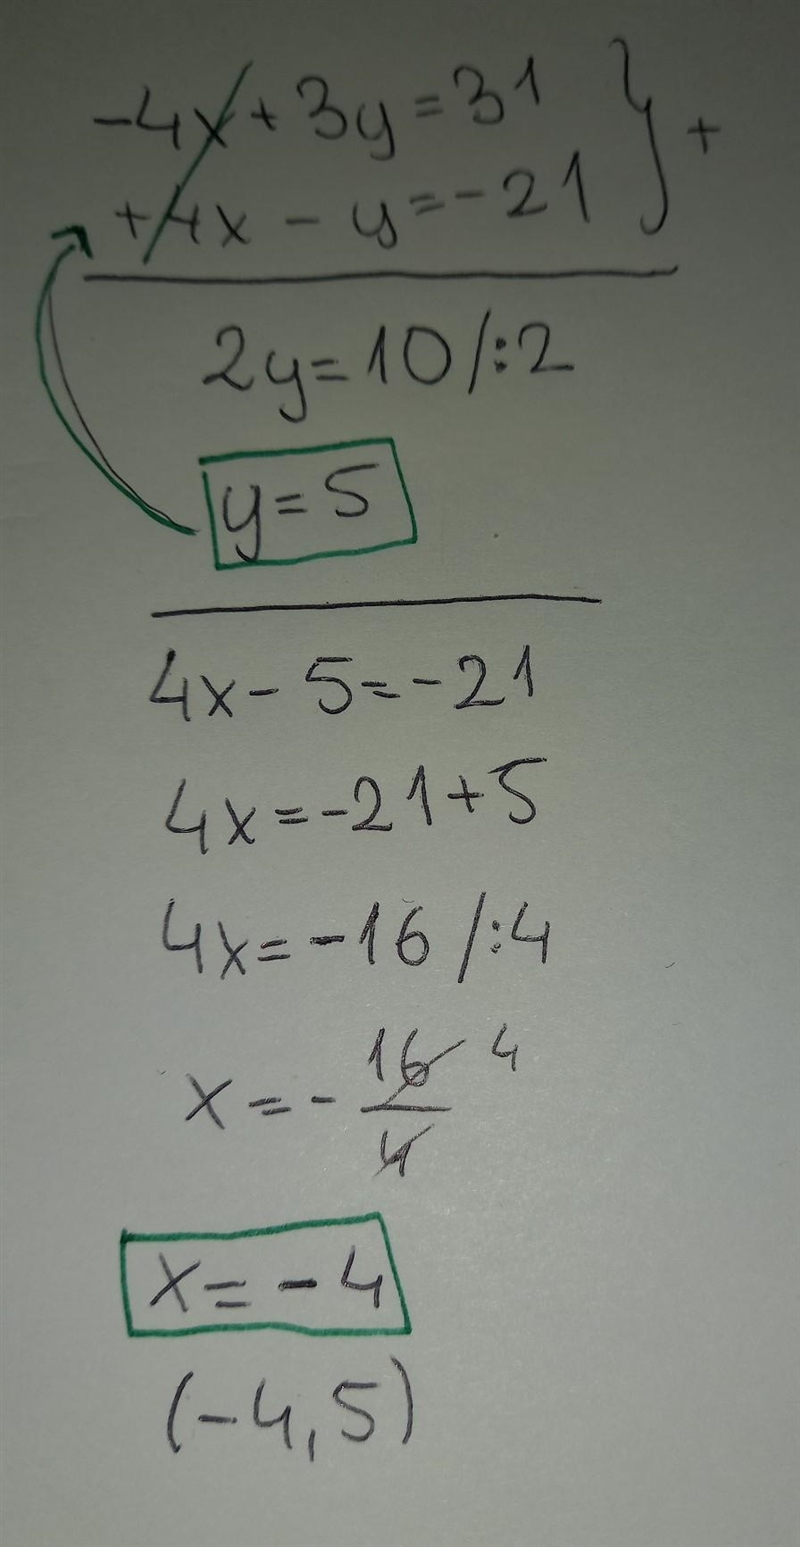 -4x + 3y = 31 } +
+4x - y = -21
2y = 10 /:2
y = 5
4x - 5 = -21
4x = -21 + 5
4x = -16 /:4
x = - 16/4 4
x = -4
(-4, 5)